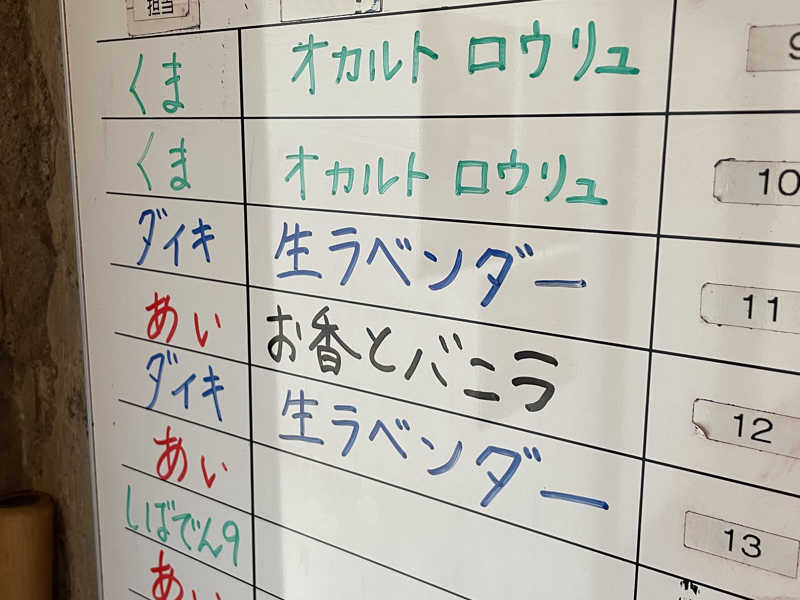 担当
くま オカルト ロウリュ
くま オカルト ロウリュ
ダイキ 生ラベンダー 10
あい お香とバニラ 11
ダイキ 生ラベンダー 12
あい
しばでん9 13
あい